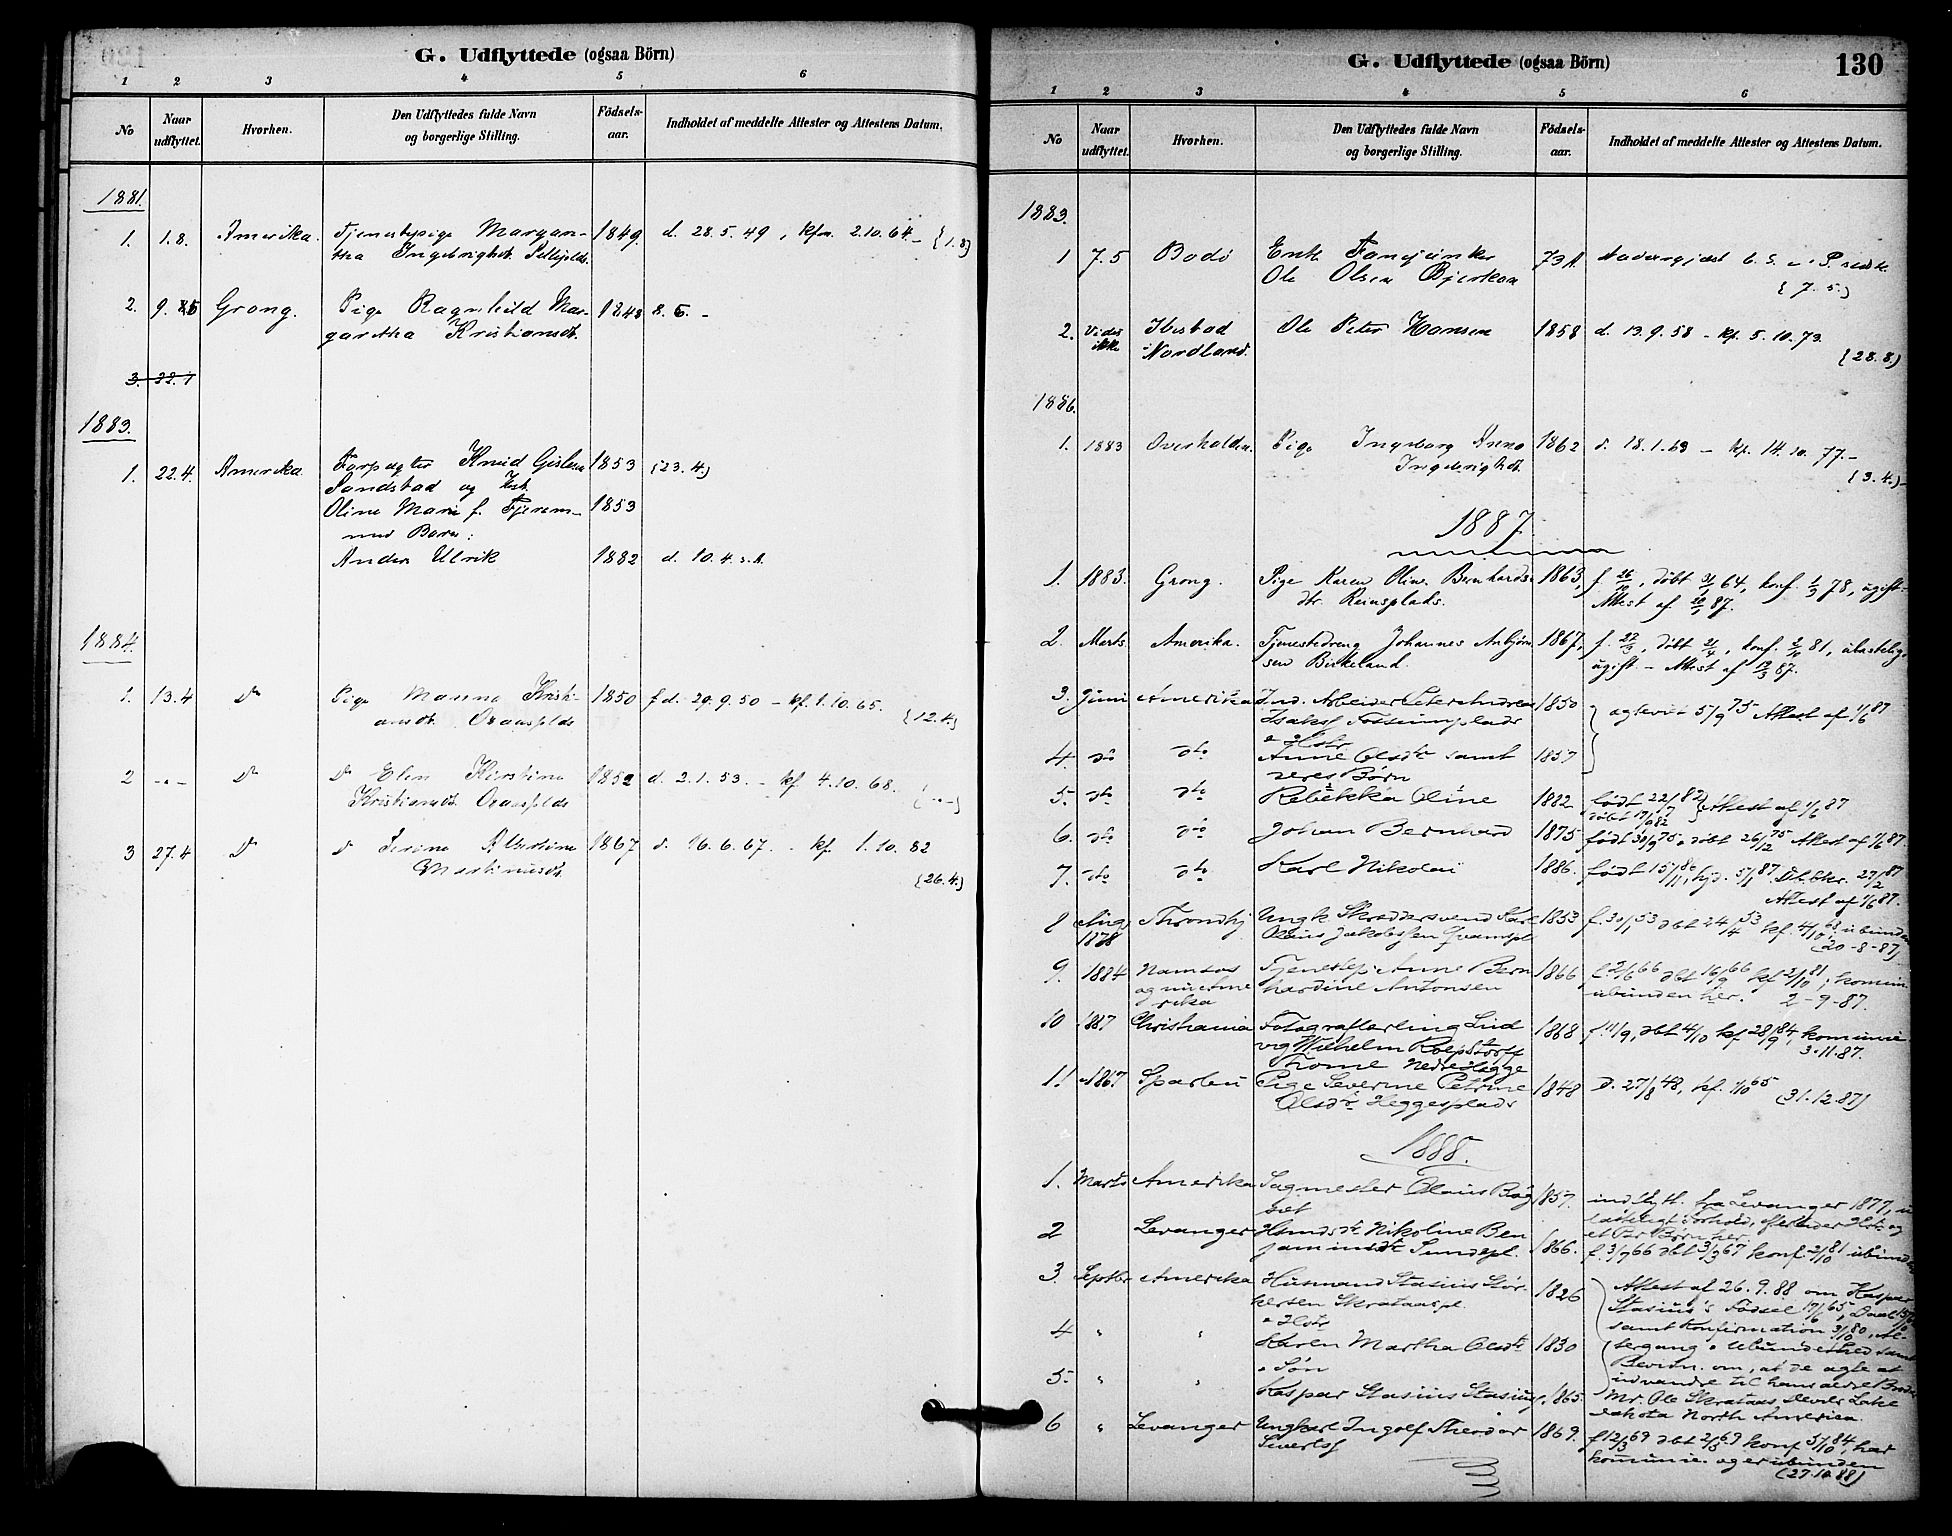 G. Udflyttede (ogsaa Börn)
1 2 3 4 5 6
No Naar udflyttet. Hvorhen. Den Udflyttedes fulde Navn og borgerlige Stilling. Fødsels-aar. Indholdet af meddelte Attester og Attestens Datum.
1881.
1. 1.8. Amerika. Tjenestepige Margan- 1849. d. 28.5.49, kfm. 2.10.64. - (1.8)
tha Ingebrigtsdt.
2. 9. Grong. Pige Ragnhild Mar- 1848 8.5. -
garetha Kristiansdt.
3. 22.1
1883.
1. 22.4. Amerika Forpagter Knud Gislesen 1853 (23.4.)
Sandstad og Hst.
Oline Marie f. 1853
med Barn:
Anders Ulrik 1882 d. 10.4. s.A.
1884.
1. 13.4 Do Pige Manna Kristi- 1850 f.d. 29.9.50 - kf. 1.10.65.
ansdt. (12.4)
2 -"- Do Do Elen Kirstine 1852 d. 2.1.53. - kf 4.10.68.
Kristiansdt. (-"-)
3 27.4 Do Do Albertine 1867 d. 16.6.67. - kf. 1.10.82
Martinusdt. (26.4.)
G. Udflyttede (ogsaa Börn) 130
1 2 3 4 5 6
No Naar udflyttet. Hvorhen. Den Udflyttedes fulde Navn og borgerlige Stilling. Fødsels-aar. Indholdet af meddelte Attester og Attestens Datum.
1883.
1 7.5 Bodø Enk. Fanejunker
Ole Olsen (7.5.)
2. Vides ikke Ibestad i Nordland. Ole Peter Hansen 1858 d. 13.9.58 - kf. 5.10.73.
(28.8.)
1886.
1. 1883 Overhalden. Pige Ingeborg Anna 1862 d. 18.1.63 - kf. 14.10.77. -
Ingebrigtsdt. (3.4.) -
1887.
1. 1883. Grong. Pige Karen Oline Bernhards- 1863, f. 26/10, døbt 31/1 64, konf. 1/3 78, ugift -
dtr. Reinsplads. Attest af 20/1 87.
2. Marts Amerika. Tjenestedreng Johannes Anbjørn- 1867, f. 22/3, døbt 21/4, konf. 2/10 81, ulastelig,
sen Birkeland. ugift - Attest af 12/3 87.
3. Juni Amerika Ind. Arbeider Peter Andreas 1850 agtevit 5/9 75 Attest af 1/6 87
Isaksf Fossumplads
& Hstr
4. do dto Anne Olsdtr samt 1857
deres Børn
5. dto dto Rebekka Oline 1882 født 22/7 82 Attest af 1/6 87
døbt 17/9 82
6. do do Johan Bernhard 1875 født 30/9 75, døbt 26/12 75 Attest af 1/6 87.
7. dto dto Karl Nikolai 1886. født 15/11 86, hjd. 5/1 87. Dbbkr. 27/2 87
Attest af 1/6 87.
8 Aug. 1878 Throndhj Ungk Skræddersvend Karl 1853 f. 30/1 53 dbt 24/4 53 kf. 4/10 68, ubunden
Olaus Jakobssen (20-8-87)
9. 1884 Namsos Tjenestep: Anne Bern 1866 f. 2/6 66 dbt 16/9 66 kf 2/10 81, komun.
og nu Ame hardine Antonsen ubunden her. 2-9-87.
rika
10 1887 Christiania Fotograflærling Lud 1868 f 11/9, dbt 4/10 kf 28/9 84, komunie
vig Wilhelm Rolfstorff 3.11.87.
Thome Nedre Hegge
11 1867 Sparbu Pige Severine Petrine 1848 D. 27/8 48, kf. 1/10 65
Olsdtr Heggesplads (31.12.87)
1888.
1. Marts Amerika Sagmester Olaus Bag 1857. indflytt. fra Levanger 1877, u
lasteligt Forhold, efterlader Hstr og
et Par Børn her.
2 Levanger Husmdsdtr Nikoline Ben 1866. f. 3/9 66 dbt 3/3 67 konf. 2/10 81 ubunden
jaminsdtr Sundspl.
3. Septbr Amerika Husmand Stasius Stør 1826 Attest af 26.9.88 om Kaspar
kersen Skrataaspl. Stasius's Fødsel 17/6 65, Daab
& Hstr samt Konfirmation 3/10 80, Al-
4 " " Karen Martha Olsdtr 1830 tergang & Ubundethed samt
& Søn Bevidn. om, at de agte at
5. " " indvandre til hans ældre Broder
Kaspar Stasius Stasiusf. 1865. Mr. Ole Skrataas Devils Lake
Dakota North America.
6 " Levanger Ungkarl Ingolf Theodor 1869. f 12/3 69 dbt 2/5 69 konf 5/10 84, har
Sivertsf komunie. og er ubunden
(27.10.88)